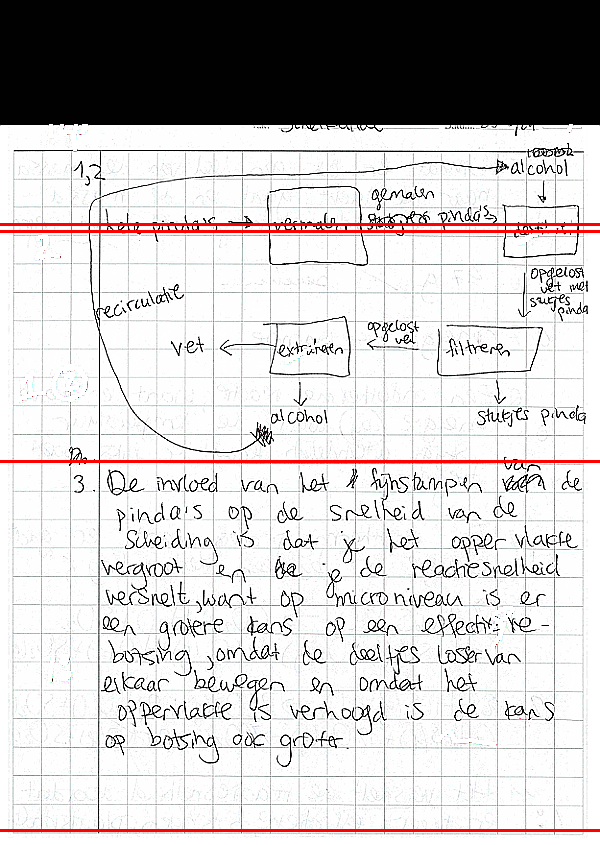 Scheikunde
1,2
alcohol
hele pinda's → vermalen
gemalen
pinda's
opgelost
vet met
stukjes
pinda
recirculatie
vet ← extraheren
opgelost
vet
filtreren
alcohol
stukjes pinda
3. De invloed van het fijnstampen van de
pinda's op de snelheid van de
Scheiding is dat je het oppervlakte
vergroot en je de reactiesnelheid
versnelt, want op microniveau is er
een grotere kans op een effectieve-
botsing, omdat de deeltjes loser van
elkaar bewegen en omdat het
oppervlakte is verhoogd is de kans
op botsing ook groter.